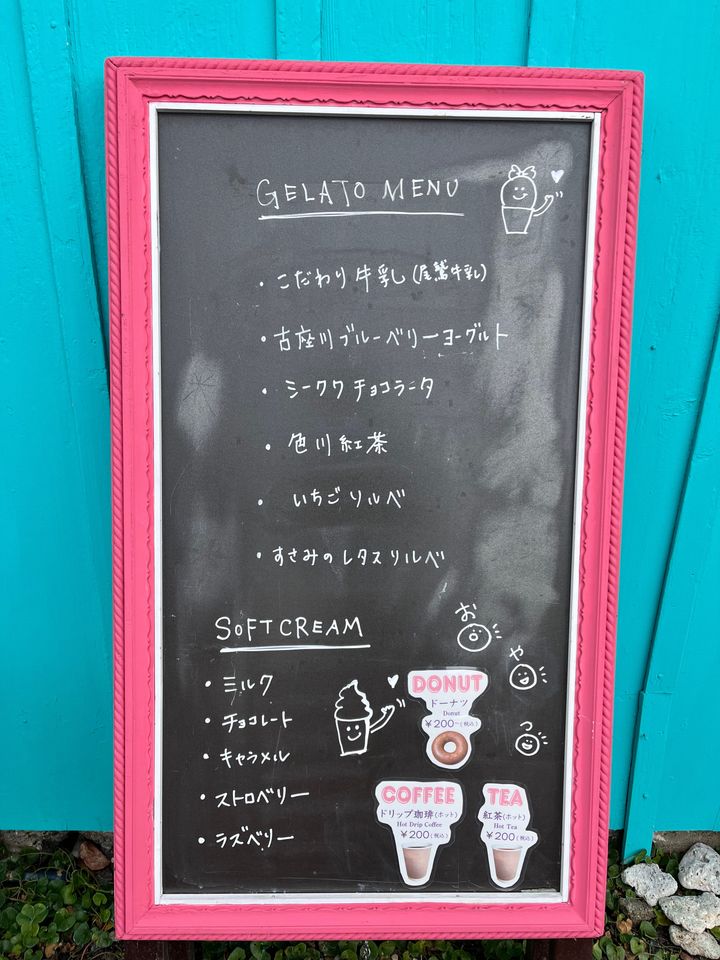 GELATO MENU
・こだわり牛乳(尾鷲牛乳)
・古座川ブルーベリーヨーグルト
・シークワチョコラータ
・色川紅茶
・いちごソルベ
・すさみのレタスソルベ
SOFTCREAM
・ミルク
・チョコレート
・キャラメル
・ストロベリー
・ラズベリー
お
や
つ
DONUT
ドーナツ
Donut
¥200~(税込)
COFFEE
ドリップ珈琲(ホット)
Hot Drip Coffee
¥200(税込)
TEA
紅茶(ホット)
Hot Tea
¥200(税込)